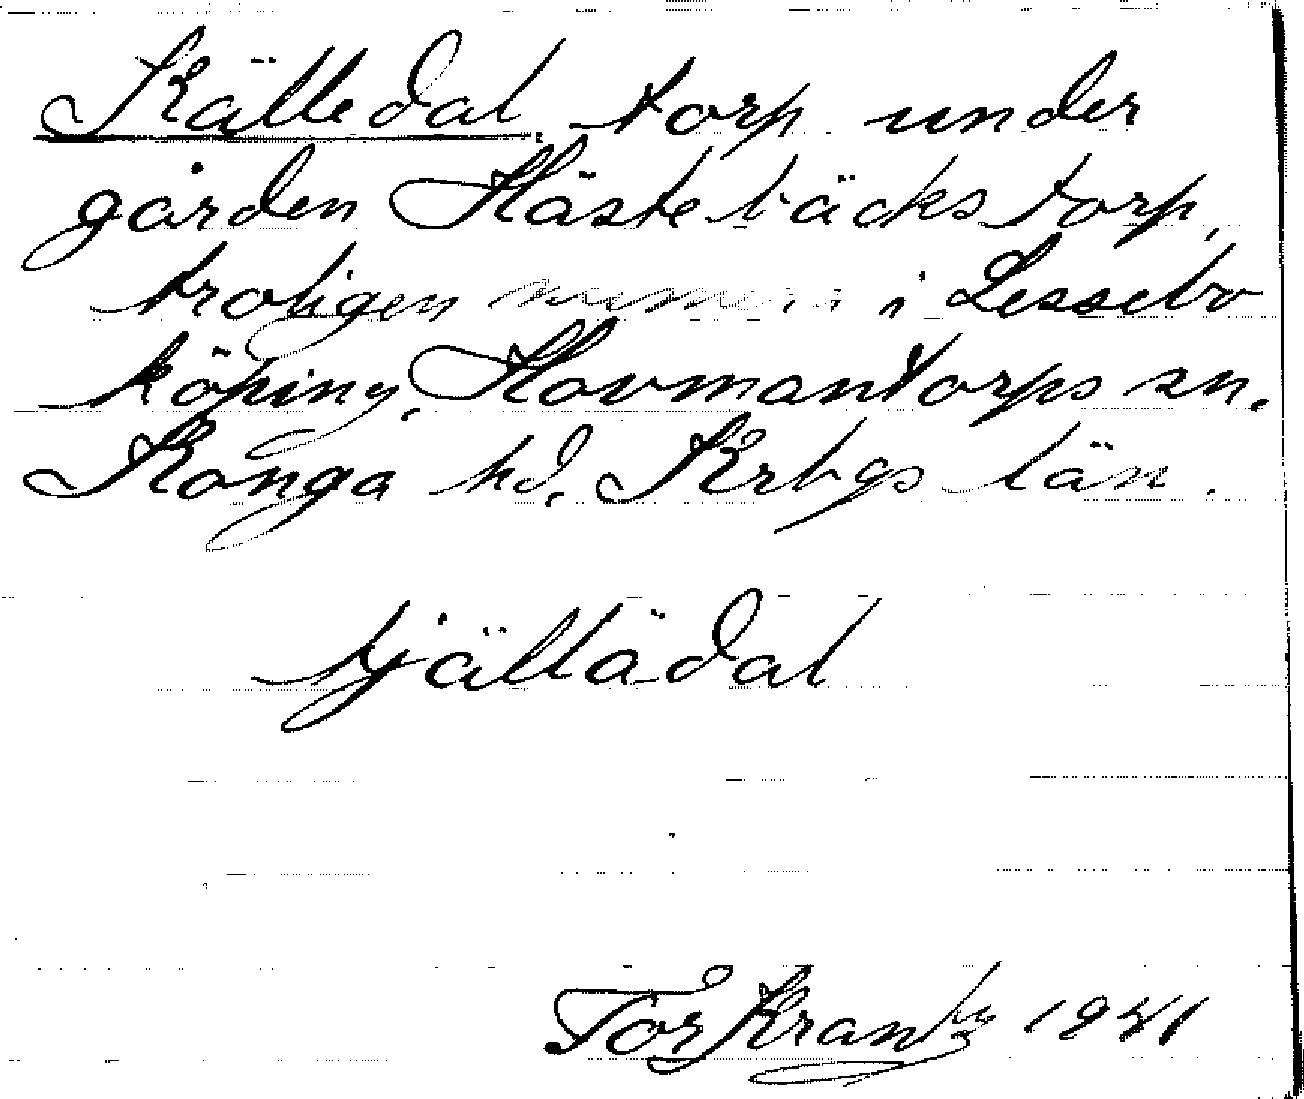 Källedal, torp under
gården Hästebäckstorp,
troligen numera i Lessebo
köping, Hovmantorps sn.
Konga hd. Krbgs län.
kjälladal
Tor Krantz 1941